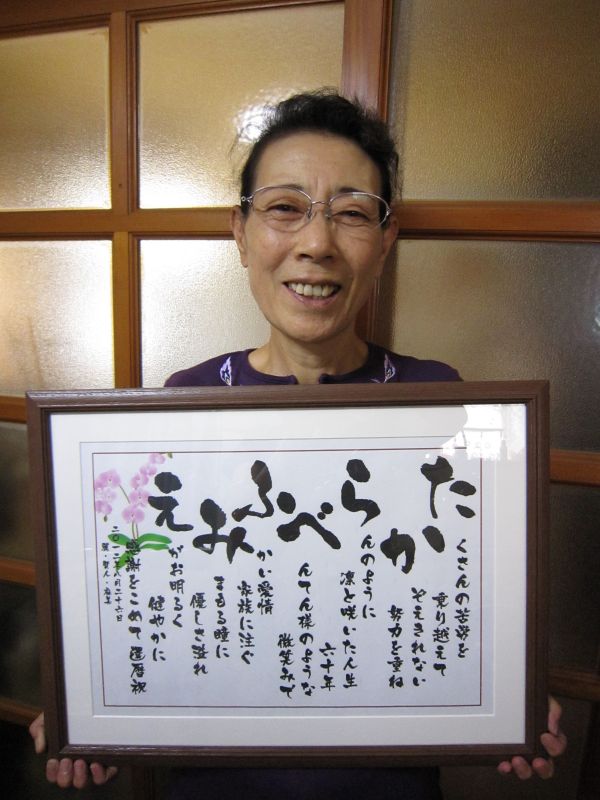 たくさんの苦労を
乗り越えて
かぞえきれない
努力を重ね
らんのように
凛と咲いた人生
六十年
べんてん様のような
微笑みで
ふかい愛情
家族に注ぐ
みまもる瞳に
優しさ溢れ
えがお明るく
健やかに
感謝をこめて 還暦祝
二〇一二年八月二十六日